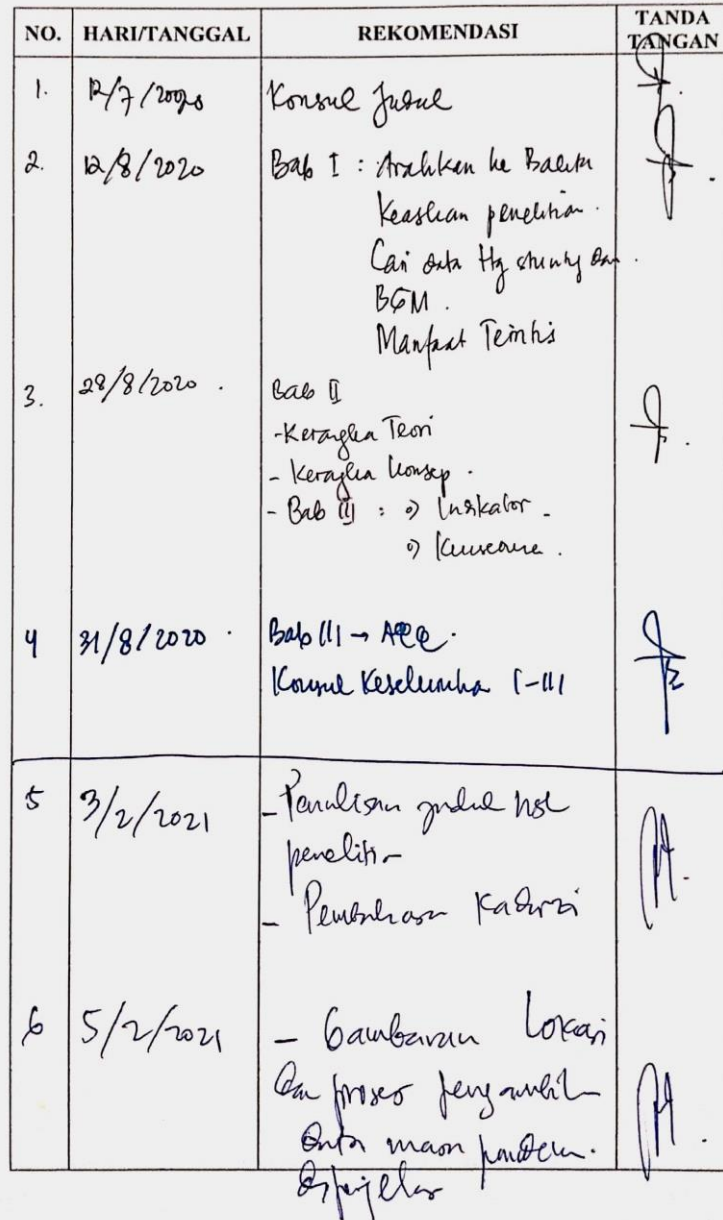 NO. HARI/TANGGAL REKOMENDASI TANDA TANGAN
1. 12/7/2020 Konsul Judul
2. 12/8/2020 Bab I : Arahkan ke Balita
Keaslian penelitian.
Cari data ttg stunting dan.
BGM.
Manfaat Teoritis
3. 28/8/2020. Bab II
- Kerangka Teori
- Kerangka Konsep.
- Bab III : o) Indikator.
o) Kuesioner.
4 31/8/2020. Bab III → ACC.
Konsul Keseluruhan I-III
5 3/2/2021 - Penulisan judul hsl
penelitian
- Pembahasan Kadarzi
6 5/2/2021 - Gambaran Lokasi
dan proses pengambilan
data masa pandemi.
diperjelas